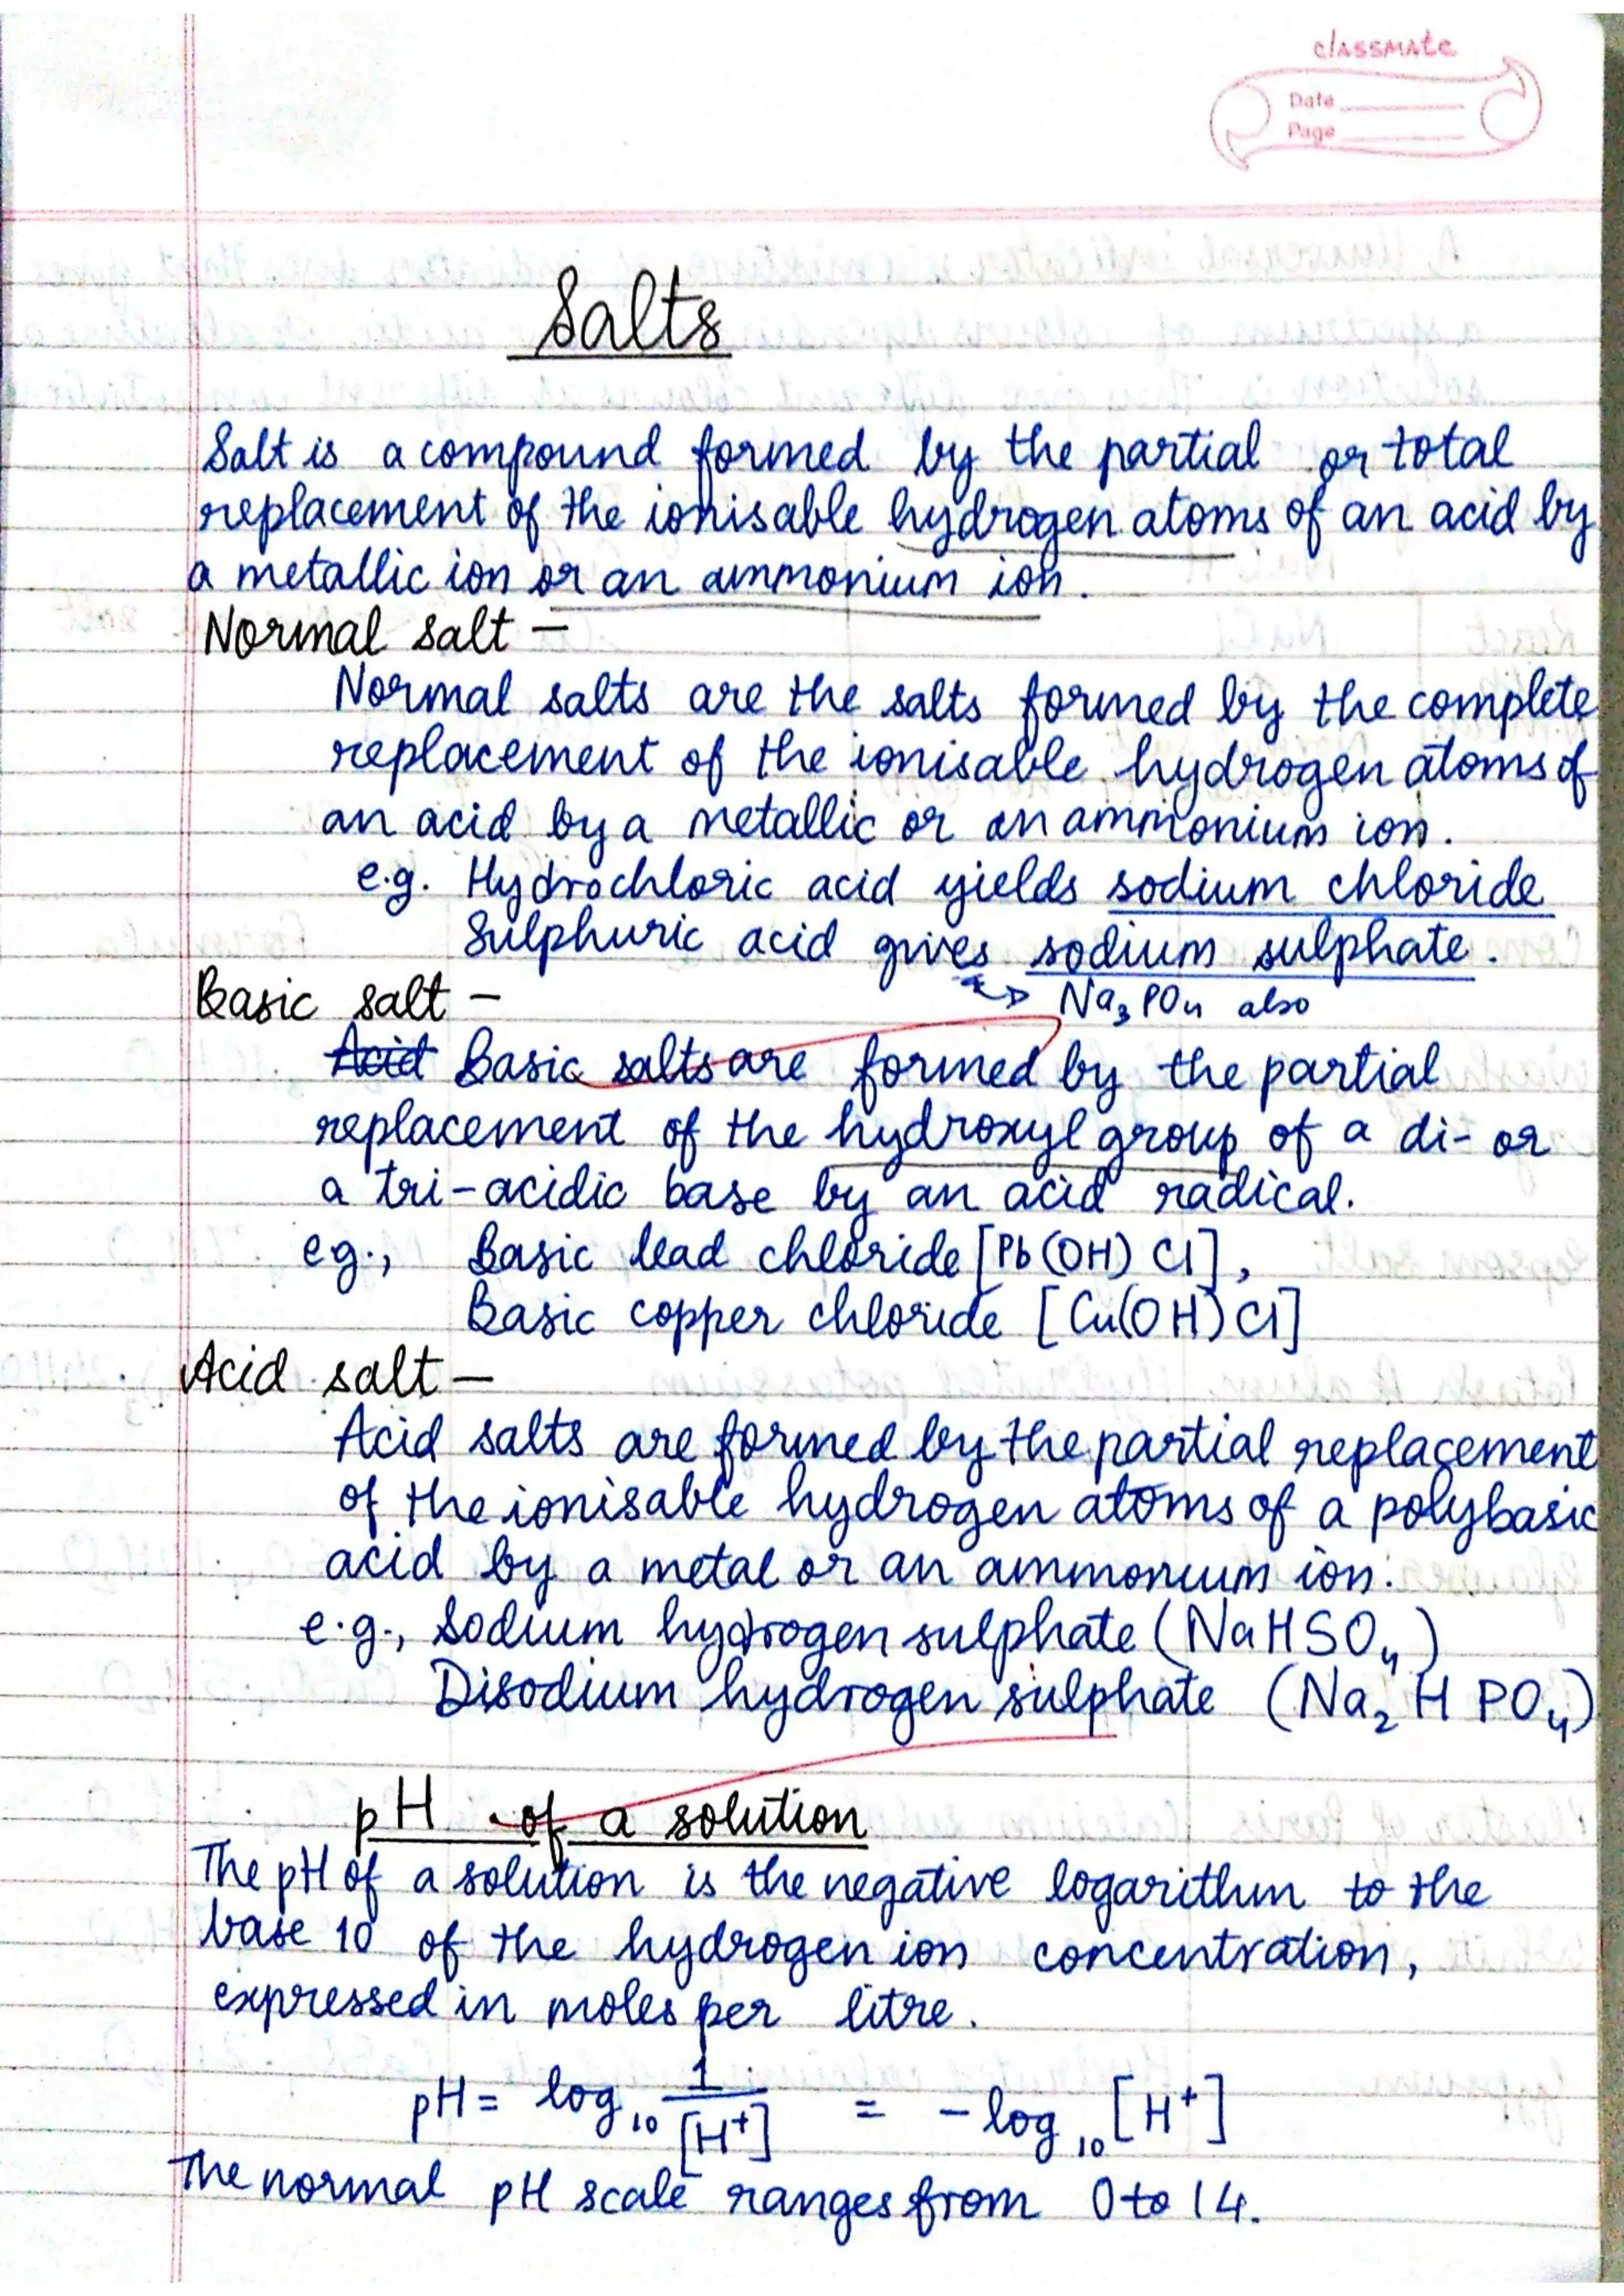 classmate
Date
Page
Salts
Salt is a compound formed by the partial or total
replacement of the ionisable hydrogen atoms of an acid by
a metallic ion or an ammonium ion.
Normal salt -
Normal salts are the salts formed by the complete
replacement of the ionisable hydrogen atoms of
an acid by a metallic or an ammonium ion.
e.g. Hydrochloric acid yields sodium chloride
Sulphuric acid gives sodium sulphate.
Na₃PO₄ also
Basic salt -
Acid Basic salts are formed by the partial
replacement of the hydroxyl group of a di- or
a tri-acidic base by an acid radical.
eg., Basic lead chloride [Pb(OH) Cl],
Basic copper chloride [Cu(OH)Cl]
Acid salt -
Acid salts are formed by the partial replacement
of the ionisable hydrogen atoms of a polybasic
acid by a metal or an ammonium ion.
e.g., Sodium hydrogen sulphate (NaHSO₄)
Disodium hydrogen sulphate (Na₂ H PO₄)
pH of a solution
The pH of a solution is the negative logarithm to the
base 10 of the hydrogen ion concentration,
expressed in moles per litre.
pH = log₁₀ 1/[H⁺] = -log₁₀ [H⁺]
The normal pH scale ranges from 0 to 14.